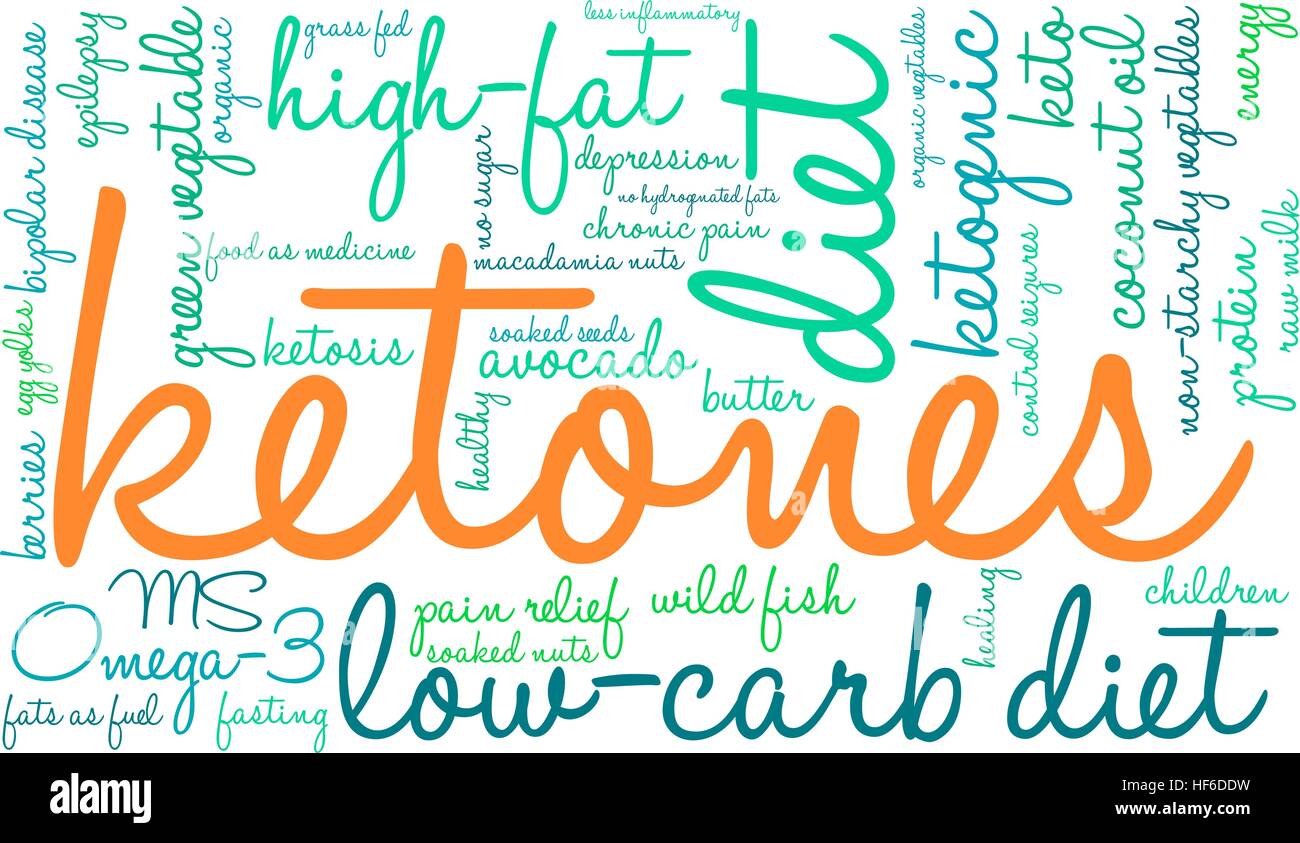 less inflammatory
grass fed
high-fat
diet
epilepsy
bipolar disease
green vegetable
organic
no sugar
depression
no hydrognated fats
chronic pain
macadamia nuts
food as medicine
organic vegetables
ketogenic
keto
coconut oil
non-starchy vegtables
energy
raw milk
protein
control seizures
egg yolks
ketosis
soaked seeds
avocado
butter
healthy
berries
ketones
MS
Omega-3
fats as fuel
fasting
pain relief
soaked nuts
wild fish
low-carb diet
healing
children
alamy
Image ID: HF6DDW
www.alamy.com